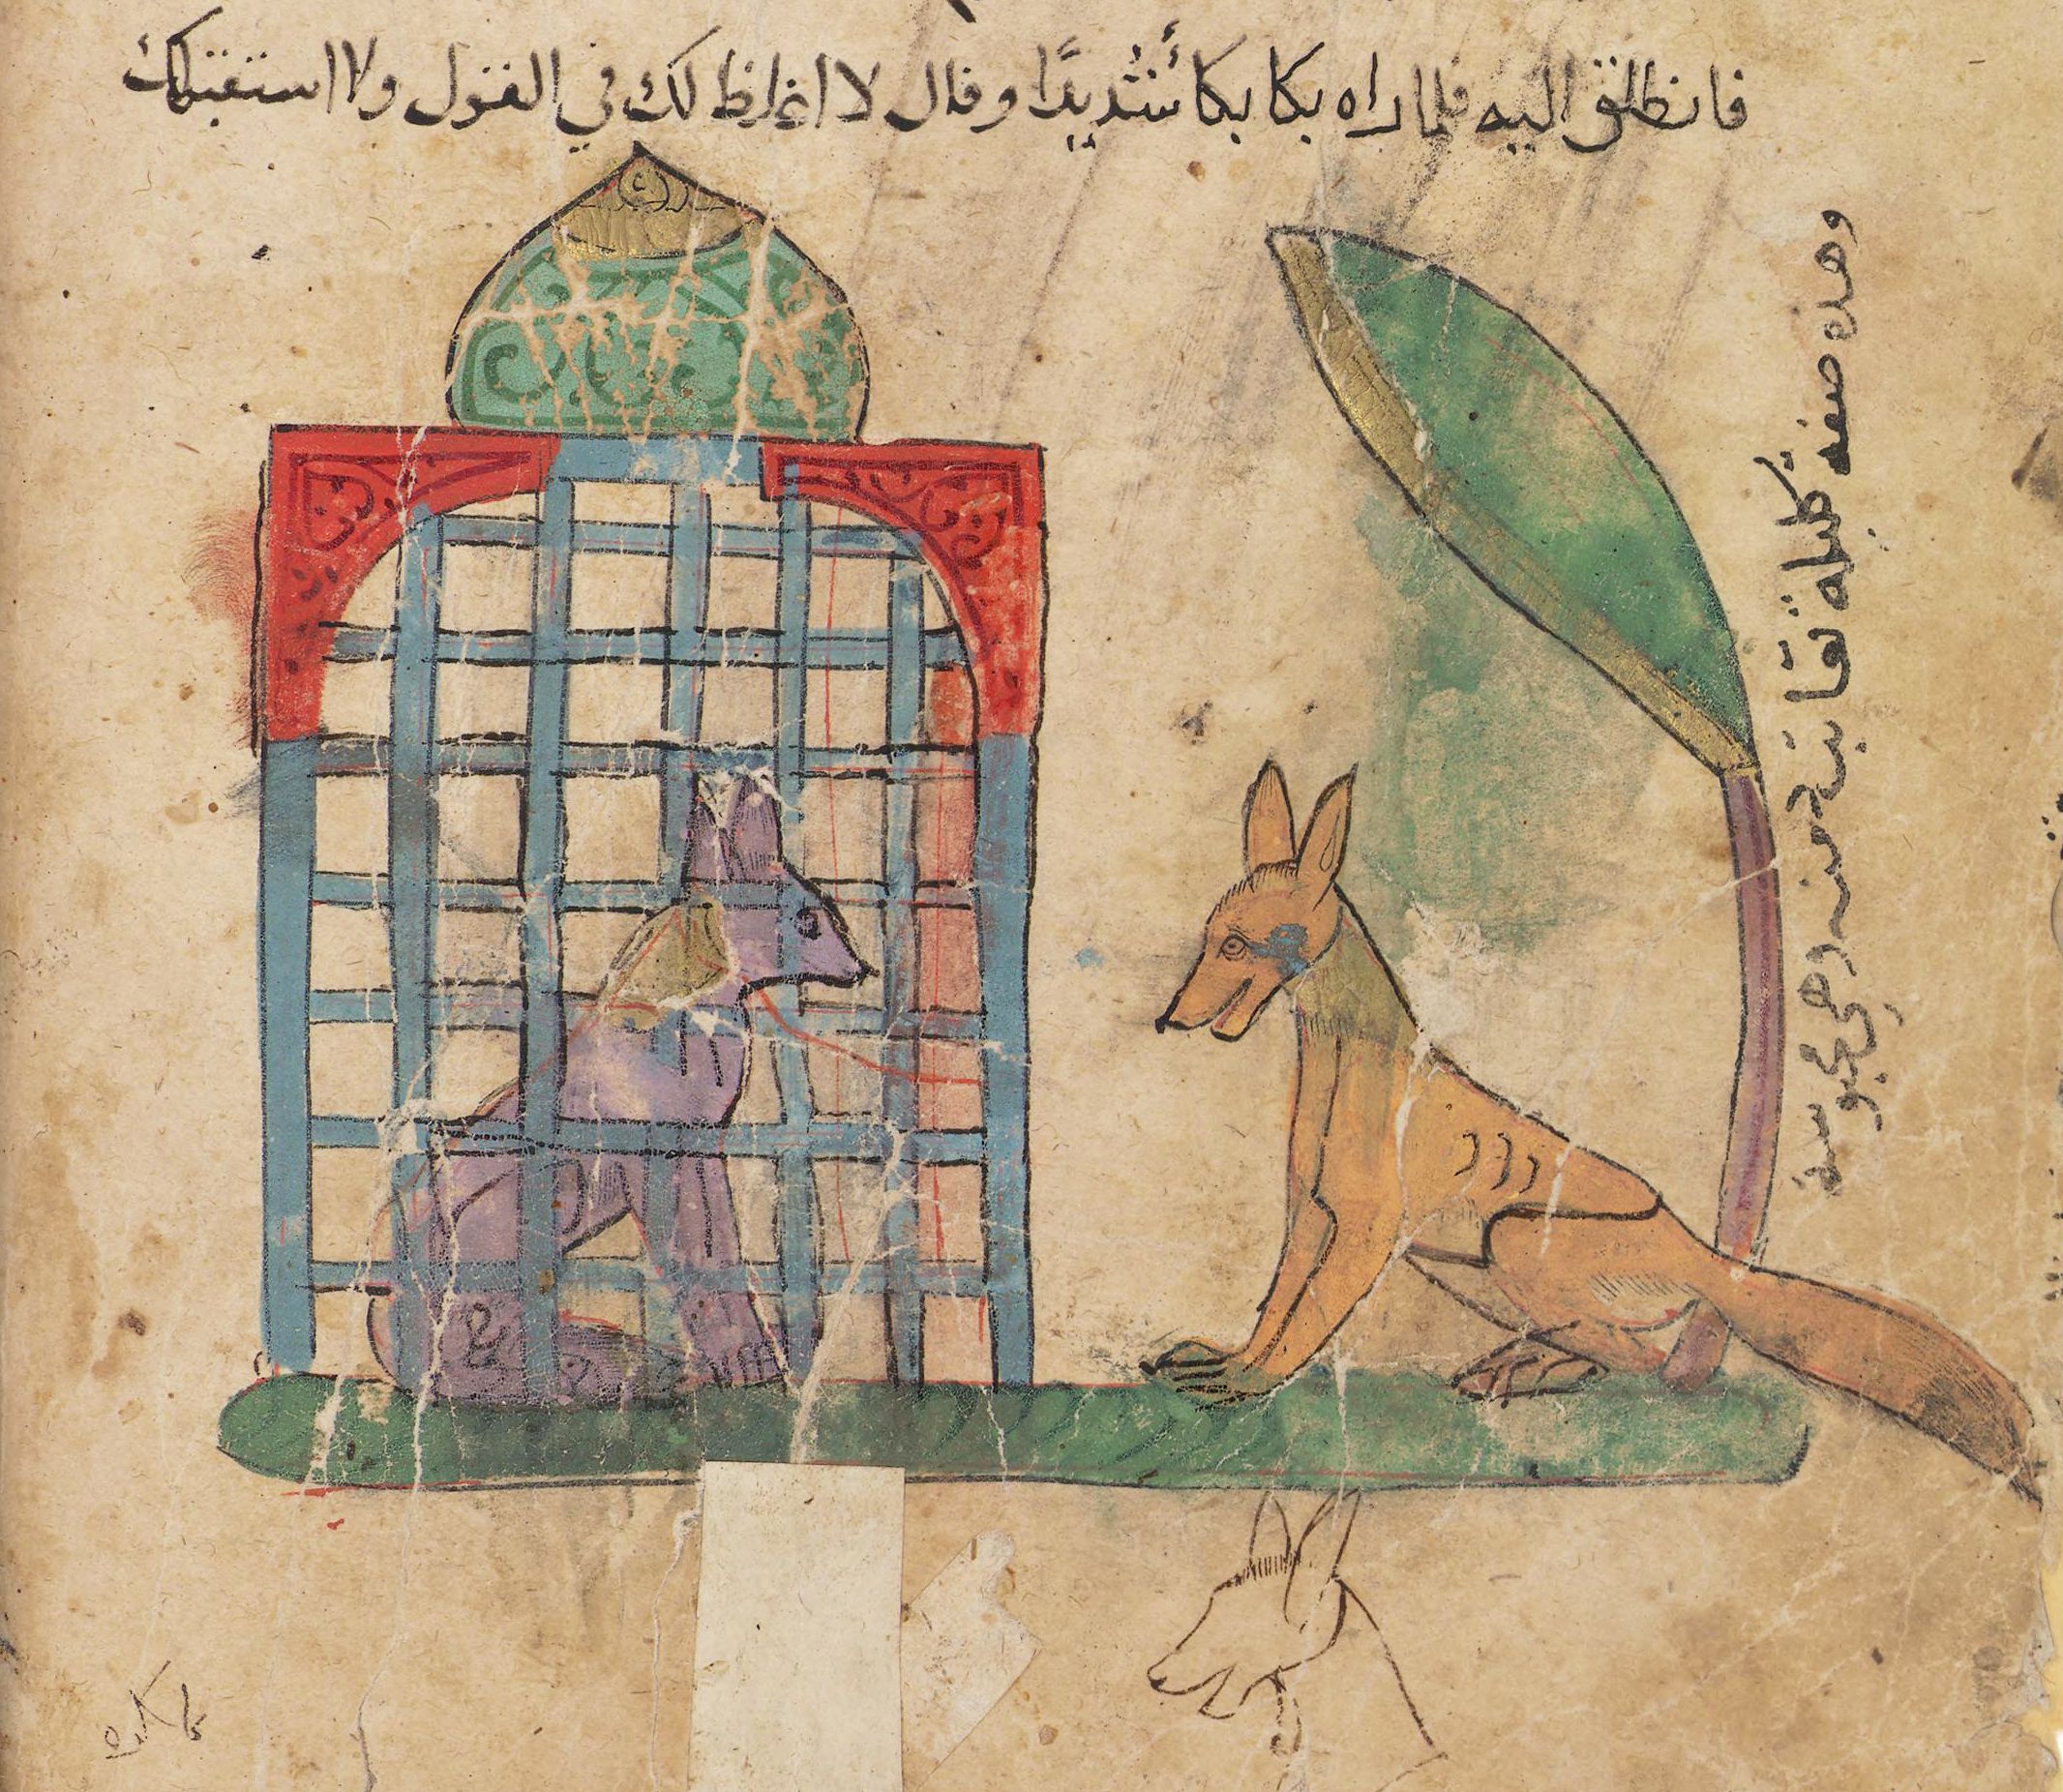 فانطلق اليه فلما راه بكا بكاً شديدًا وقال لا اغلظ لك في القول ولا استقبلك
وهذه صفه كليلة تعاتب دمنه وهي محبوسة